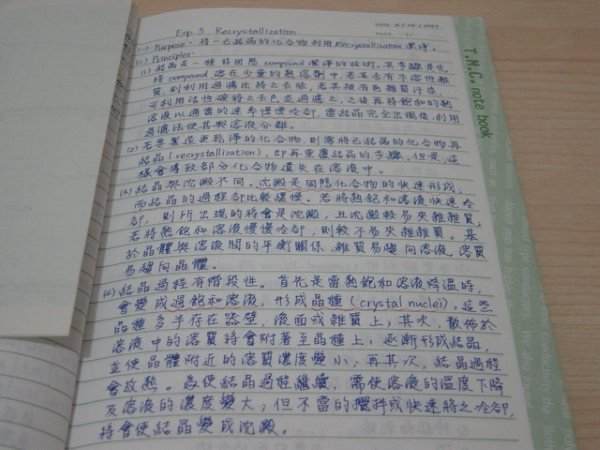 Exp. 3 Recrystallization
DATE
PAGE
(一) Purpose: 將一已結晶的化合物利用Recrystallization 潔淨。
(二) Principles:
(1) 結晶是一種將固態 compound 潔淨的技術。其步驟是先
將 compound 溶在少量的熱溶劑中,若其含有不溶性雜
質,則利用過濾法將之去除,若其液有色雜質汙染,
可利用活性碳將之去色並過濾之。之後再將飽和的熱
溶液以適當的速率慢慢冷卻,當結晶完全出現後,利用
過濾法使其與溶液分離。
(2) 若要製造更乾淨的化合物,則需將已結晶的化合物再
結晶(recrystallization),即再重覆結晶的步驟。但是,這
樣會導致部分化合物遺失在溶液中。
(3) 結晶與沈澱不同。沈澱是固態化合物的快速形成,
而結晶的過程卻比較緩慢。若將熱飽和溶液快速冷
卻,則所出現的將會是沈澱,且沈澱較易夾雜雜質,
若將熱飽和溶液慢慢冷卻,則較不易夾雜雜質。基
於晶體與溶液間的平衡關係,雜質易趨向溶液,溶質
易趨向晶體。
(4) 結晶過程有階段性。首先是當熱飽和溶液降溫時,
會變成過飽和溶液,形成晶種(crystal nuclei),這些
晶種多半存在器壁,液面或雜質上;其次,散佈於
溶液中的溶質將會附著至晶種上,逐漸形成結晶,
並使晶體附近的溶質濃度變小;再其次,結晶過程
會放熱。為使結晶過程繼續,需使溶液的溫度下降
及溶液的濃度變大;但不當的攪拌或快速將之冷卻,
將會使結晶變成沈澱。
T.M.C. note book